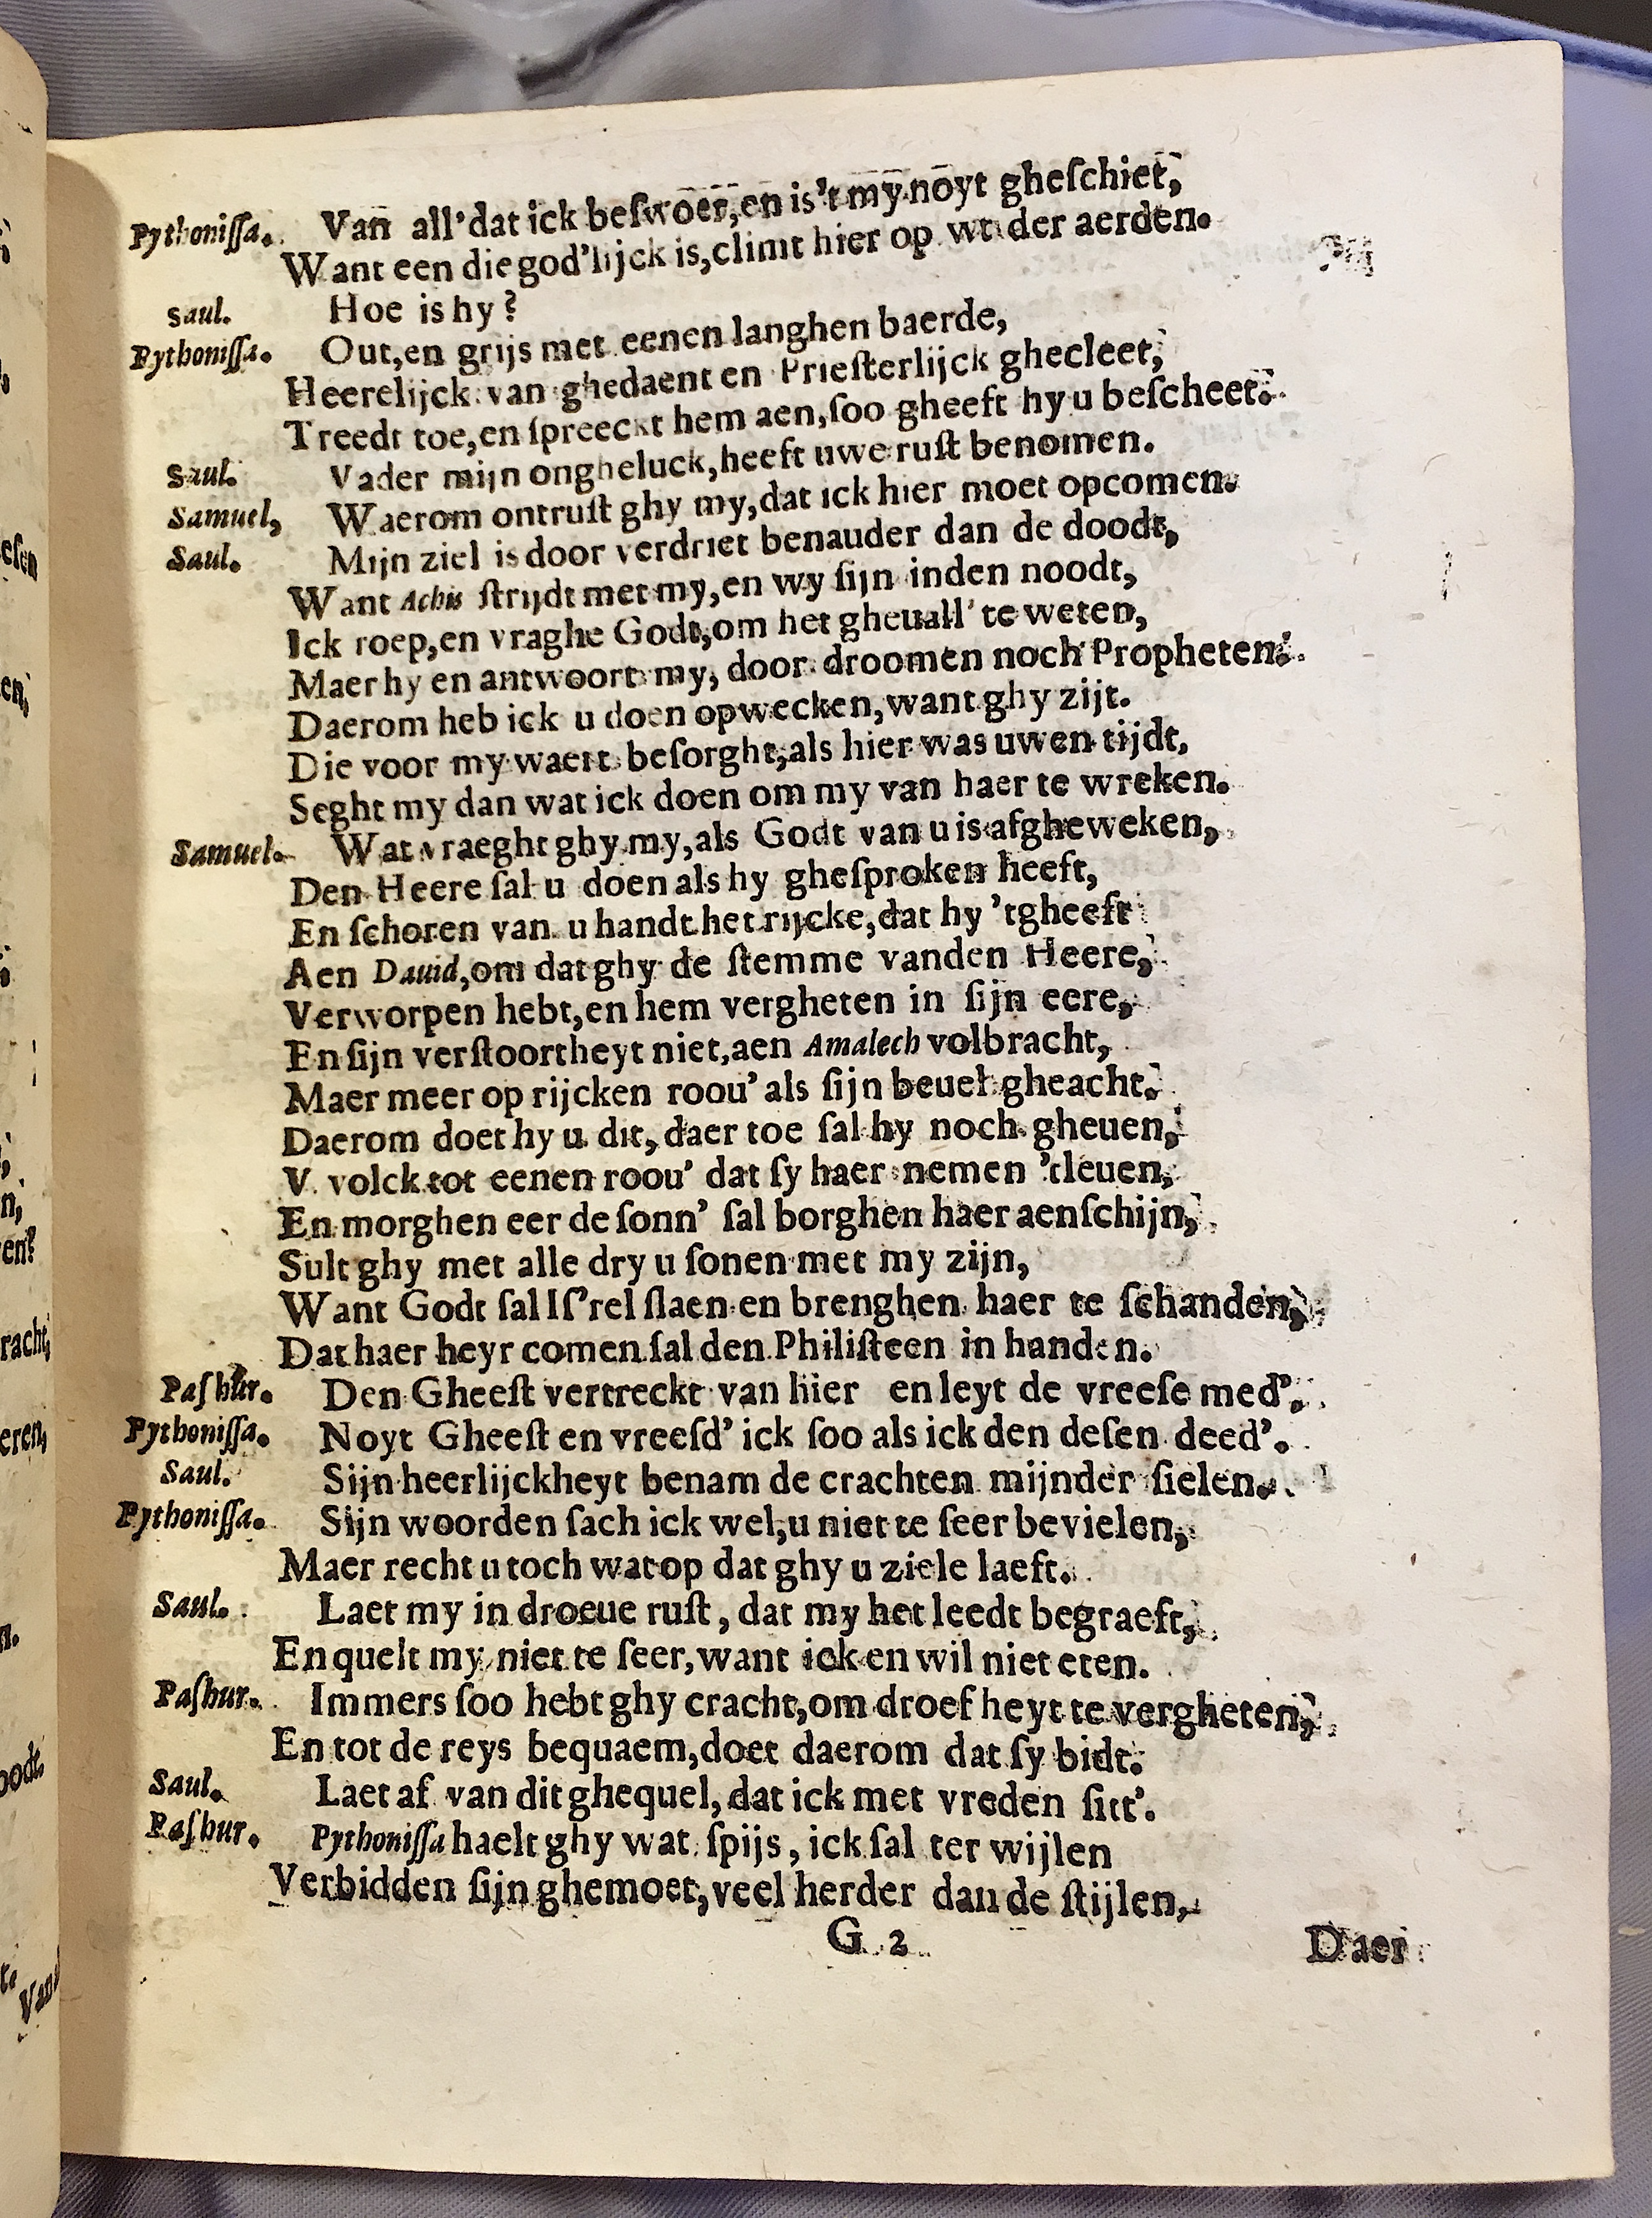 Pythoniſſa. Van all' dat ick beſwoer, en is't my noyt gheſchiet,
Want een die god'lijck is, climt hier op wt der aerden.
Saul. Hoe is hy?
Pythoniſſa. Out, en grijs met eenen langhen baerde,
Heerelijck van ghedaent en Prieſterlijck ghecleet,
Treedt toe, en ſpreeckt hem aen, ſoo gheeft hy u beſcheet.
Saul. Vader mijn ongheluck, heeft uwe ruſt benomen.
Samuel, Waerom ontruſt ghy my, dat ick hier moet opcomen.
Saul. Mijn ziel is door verdriet benauder dan de doodt,
Want Achis ſtrijdt met my, en wy ſijn inden noodt,
Ick roep, en vraghe Godt, om het gheuall' te weten,
Maer hy en antwoort my, door droomen noch Propheten.
Daerom heb ick u doen opwecken, want ghy zijt.
Die voor my waert beſorght, als hier was uwen tijdt,
Seght my dan wat ick doen om my van haer te wreken.
Samuel. Wat vraeght ghy my, als Godt van u is afgheweken,
Den Heere ſal u doen als hy gheſproken heeft,
En ſchoren van u handt het rijcke, dat hy 'tgheeft
Aen Dauid, om dat ghy de ſtemme vanden Heere,
Verworpen hebt, en hem vergheten in ſijn eere,
En ſijn verſtoortheyt niet, aen Amalech volbracht,
Maer meer op rijcken roou' als ſijn beuel gheacht.
Daerom doet hy u dit, daer toe ſal hy noch gheuen,
V volck tot eenen roou' dat ſy haer nemen 'tleuen,
En morghen eer de ſonn' ſal borghen haer aenſchijn,
Sult ghy met alle dry u ſonen met my zijn,
Want Godt ſal Iſ'rel ſlaen en brenghen haer te ſchanden,
Dat haer heyr comen ſal den Philiſteen in handen.
Paſhur. Den Gheeſt vertreckt van hier en leyt de vreeſe med'.
Pythoniſſa. Noyt Gheeſt en vreeſd' ick ſoo als ick den deſen deed'.
Saul. Sijn heerlijckheyt benam de crachten mijnder ſielen.
Pythoniſſa. Sijn woorden ſach ick wel, u niet te ſeer bevielen,
Maer recht u toch wat op dat ghy u ziele laeft.
Saul. Laet my in droeue ruſt, dat my het leedt begraeft,
En quelt my niet te ſeer, want ick en wil niet eten.
Paſhur. Immers ſoo hebt ghy cracht, om droef heyt te vergheten,
En tot de reys bequaem, doet daerom dat ſy bidt.
Saul. Laet af van dit ghequel, dat ick met vreden ſitt'.
Paſhur. Pythoniſſa haelt ghy wat ſpijs, ick ſal ter wijlen
Verbidden ſijn ghemoet, veel herder dan de ſtijlen,
G 2 Daer